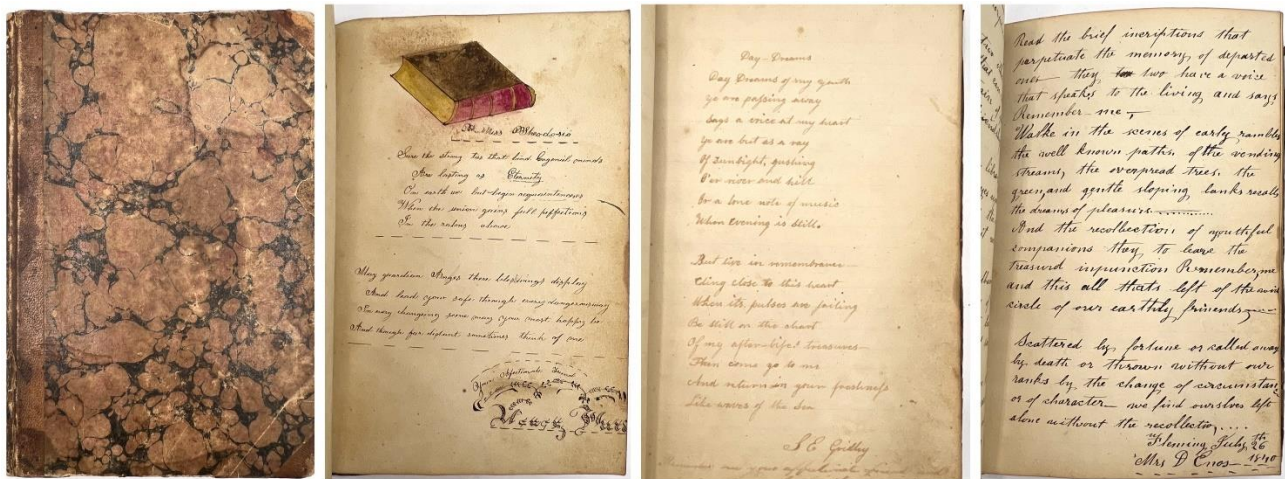 To Miss Theodosia
Sure the strong ties that bind Congenial minds
Are lasting as Eternity
On earth we but begin acquaintences
When the union gains full perfections
In the above
May guardean Anges there display
And lead your safe through every dangerous way
In may changing seene may your most happy be
And though far distant sometimes think of me
Your Friend
Day-Dreams
Day Dreams of my youth
Ye are passing away
Says a voice at my heart
Ye are but as a ray
Of sunlight, gushing
O'er river and hill
Or a lone note of music
When evening is still.
But live in remembrance
Cling close to this heart
When its pulses are failing
Be still on the chart
Of my after-life's treasures
Then come go to me
And return in your freshness
Like waves of the Sea
S E Gridley
Read the brief incriptions that
perpetuate the memory of departed
ones they two have a voice
that speaks to the living and says
Remember me,
Walke in the scenes of early rambles
the well known paths of the
streams, the overpread trees. the
green, and gentle sloping banks recalls
the dreams of pleasure
And the recollection of youthful
companions they to leave the
treasurd Remember me
and this all thats left of the
circle of our earthly frinends
Scattered by fortune or called away
by death or thrown without our
ranks by the change of circumstan
or of character we find ourslves left
alone without the recollectio
Fleming July 26th
1840
Mrs D Enos